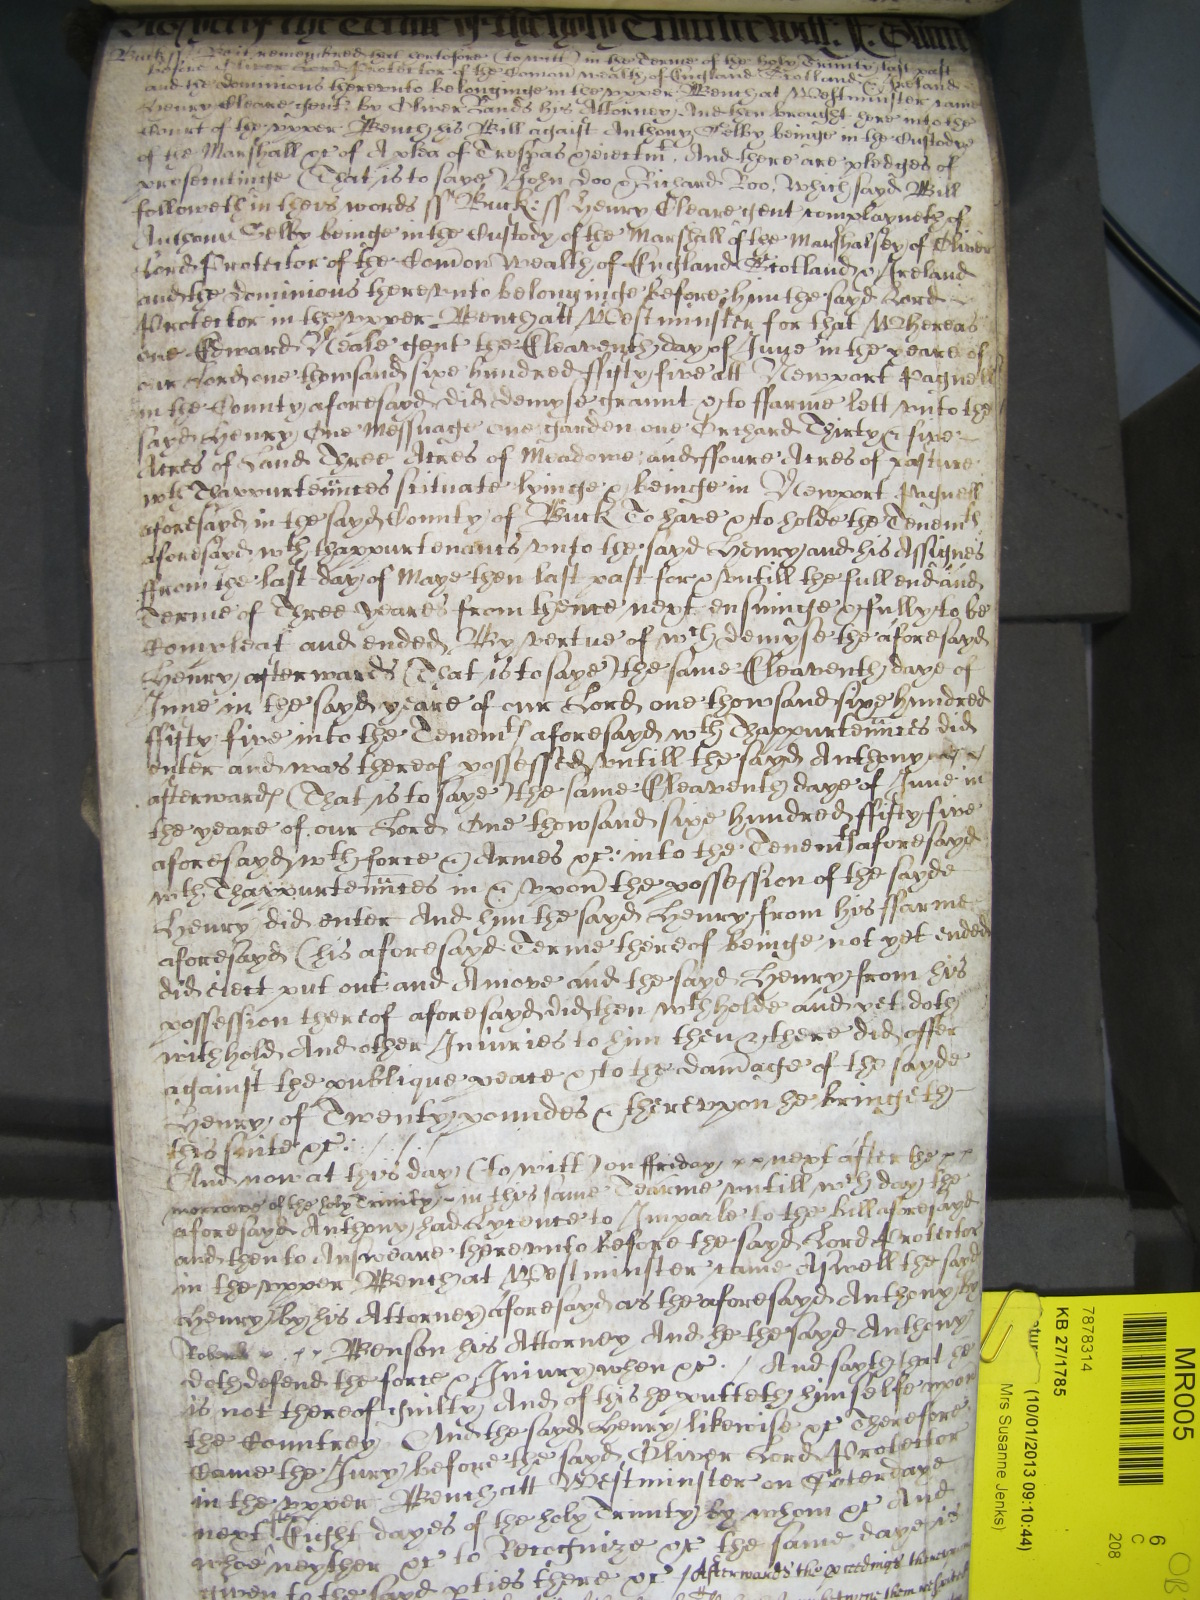 of the Terme of the holy Trinitie
Buck ss Be it remembred that heretofore (to witt) in the Terme of the holy Trinity last past
before Oliver Lord Protector of the Comon wealth of England Scotland & Ireland
and the dominions thereunto belonginge in the upper Bench at Westminster came
Henry Cleare gent by Oliver Sands his Attorney And then brought here into the
Court of the upper Bench his Bill agaist Anthony Selby beinge in the Custody
of the Marshall &c of A plea of Trespas & eiectmt. And there are pledges of
prosecutinge (That is to saye) John Doo & Richard Roo, which sayd Bill
followeth in theis words ss Buck: ss Henry Cleare gent complayneth of
Anthony Selby beinge in the Custody of the Marshall of the Marshalsey of Oliver
Lord Protector of the Comon Wealth of England Scotland & Ireland
and the dominions thereunto belonginge before him the sayd Lord
Protector in the upper Bench att Westminster for that Whereas
one Edward Neale gent the Eleaventh day of June in the yeare of
our Lord one thowsand sixe hundred ffifty five att Newport Pagnell
in the County aforesayd did demyse graunt & to ffarme lett unto the
sayd Henry One Messuage one garden one Orchard Thirty & five
Acres of Land Three Acres of Meadowe and ffoure Acres of pasture
wth Thappurtennces scituate lyinge & beinge in Newport Pagnell
aforesayd in the sayd County of Buck To have & to holde the Tenemts
aforesayd wth thappurtenances unto the sayd Henry and his Assignes
ffrom the last day of Maye then last past for & untill the full end and
Terme of Three yeares from thence next ensuinge & fully to be
Compleat and ended By vertue of wch demyse the aforesayd
Henry afterwards (That is to saye) the same Eleaventh daye of
June in the sayd yeare of our Lord one thowsand sixe hundred
ffifty five into the Tenemts aforesayd wth Thappurtennces did
enter and was thereof possessed untill the sayd Anthony
afterwards (That is to saye) the same Eleaventh daye of June in
the yeare of our Lord One thowsand sixe hundred ffifty five
aforesayd wth force & Armes &c: into the Tenemts aforesayd
wth Thappurtennces in & upon the possession of the sayde
Henry did enter And him the sayd Henry from his ffarme
aforesayd (his aforesayd Terme thereof beinge not yet ended
did eiect put out and Amove and the sayd Henry from his
possession thereof aforesayd did then wthholde and yet doth
withhold And other Iniuries to him then & there did offer
against the publique peace & to the damage of the sayde
Henry of Twenty poundes & thereupon he bringeth
this suite &c:
And now at this day (to witt) on ffriday next after the
morrowe of the holy Trinity in this same Tearme untill wch day the
aforesayd Anthony had Lycence to Imparle to the bill aforesayd
and then to Answeare thereunto before the sayd Lord Protector
in the upper Bench at Westminster came Aswell the sayd
Henry by his Attorney aforesayd as the aforesayd Anthony by
Robert Benson his Attorney And he the sayd Anthony
doth defend the force & Iniury when &c. And sayth that he
is not thereof guilty And of this he putteth himselfe upon
the Countrey And the sayd Henry likewise &c Therefore
Came the Jury before the sayd Oliver Lord Protector
in the upper Bench att Westminster on
next after Eight dayes of the holy Trinity By whom &c And
whoe neyther &c to Recognize &c the same daye is
given to the sayd pties there &c Afterwards the proceedings thereupon
betweene them
MR005
7878314
KB 27/1785
(10/01/2013 09:10:44)
Mrs Susanne Jenks)
6
C
208